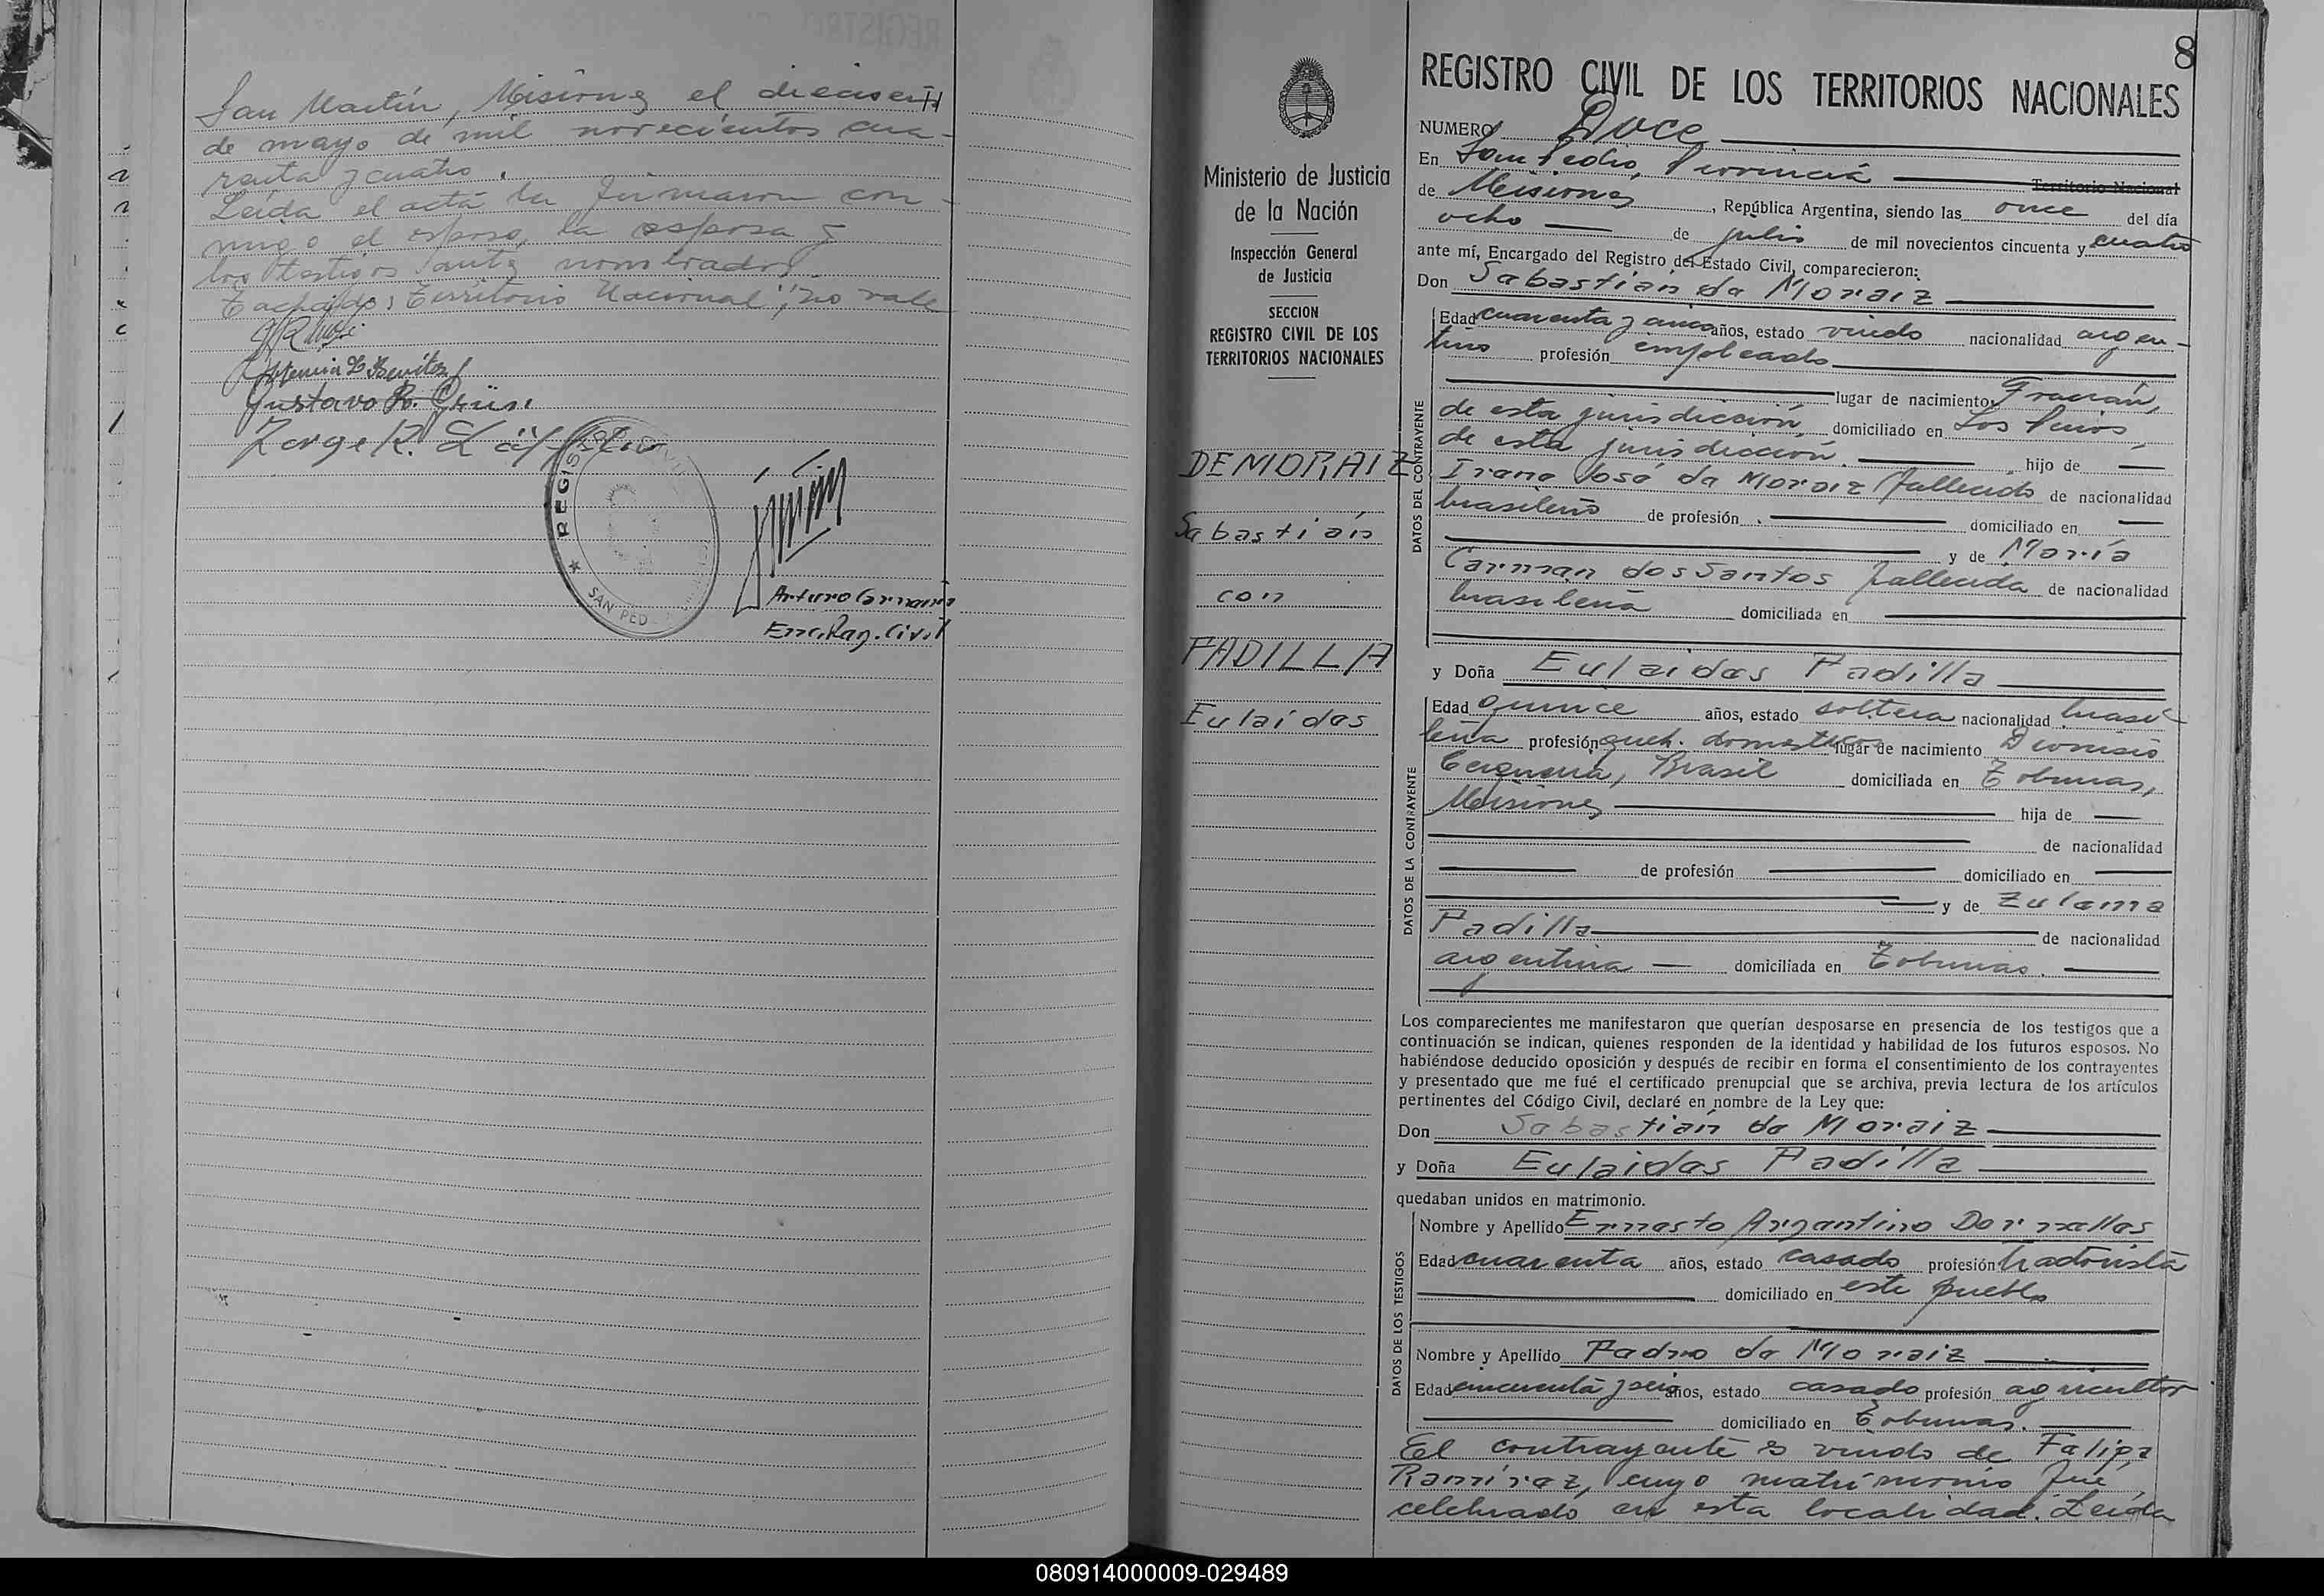 San Martín, Misiones el dieciseis
de mayo de mil novecientos cua-
renta y cuatro.
Leída el acta la firmaron con-
migo el esposo, la esposa y
los testigos antes nombrados.
Tachado: "Territorio Nacional", no vale
Gustavo R.
Jorge R.
★ REGIS
SAN PED
Arturo
Enc. Reg. Civil
Ministerio de Justicia
de la Nación
Inspección General
de Justicia
SECCION
REGISTRO CIVIL DE LOS
TERRITORIOS NACIONALES
DEMORAIZ
Sebastián
con
PADILLA
Eulaides
8
REGISTRO CIVIL DE LOS TERRITORIOS NACIONALES
NUMERO Doce
En San Pedro, Provincia Territorio Nacional
de Misiones, República Argentina, siendo las once del día
ocho de julio de mil novecientos cincuenta y cuatro
ante mí, Encargado del Registro del Estado Civil, comparecieron:
Don Sebastián de Moraiz
DATOS DEL CONTRAYENTE
Edad cuarenta y cinco años, estado viudo nacionalidad argen-
tino profesión empleado
lugar de nacimiento Fracrán,
de esta jurisdicción, domiciliado en Los Pinos,
de esta jurisdicción. hijo de
José de Moraiz fallecido de nacionalidad
brasileño de profesión domiciliado en
y de María
Carmen dos Santos fallecida de nacionalidad
brasileña domiciliada en
y Doña Eulaides Padilla
DATOS DE LA CONTRAYENTE
Edad quince años, estado soltera nacionalidad brasi-
leña profesión queh. domesticos lugar de nacimiento Dionisio
Cerqueira, Brasil domiciliada en Tobunas,
Misiones hija de
de nacionalidad
de profesión domiciliado en
y de Zulema
Padilla de nacionalidad
argentina domiciliada en Tobunas.
Los comparecientes me manifestaron que querían desposarse en presencia de los testigos que a
continuación se indican, quienes responden de la identidad y habilidad de los futuros esposos. No
habiéndose deducido oposición y después de recibir en forma el consentimiento de los contrayentes
y presentado que me fué el certificado prenupcial que se archiva, previa lectura de los artículos
pertinentes del Código Civil, declaré en nombre de la Ley que:
Don Sebastián de Moraiz
y Doña Eulaides Padilla
quedaban unidos en matrimonio.
DATOS DE LOS TESTIGOS
Nombre y Apellido Ernesto Argentino Dornelles
Edad cuarenta años, estado casado profesión tractorista
domiciliado en este pueblo
Nombre y Apellido Pedro de Moraiz
Edad cincuenta y seis años, estado casado profesión agricultor
domiciliado en Tobunas.
El contrayente es viudo de Felipa
Ramírez, cuyo matrimonio fué
celebrado en esta localidad. Leída
080914000009-029489